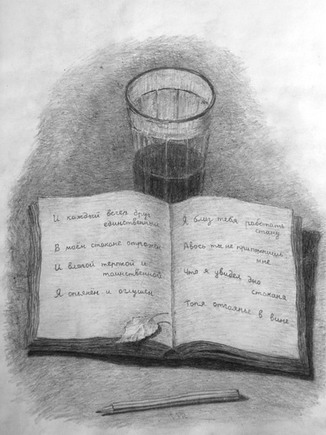 И каждый вечер друг
единственный
В моём стакане отражен
И влагой терпкой и
таинственной
Я опьянён и оглушен
Я близ тебя работать
стану
Авось ты не приснишься
мне
Что я увидел дно
стакана
Топя отчаянье в вине